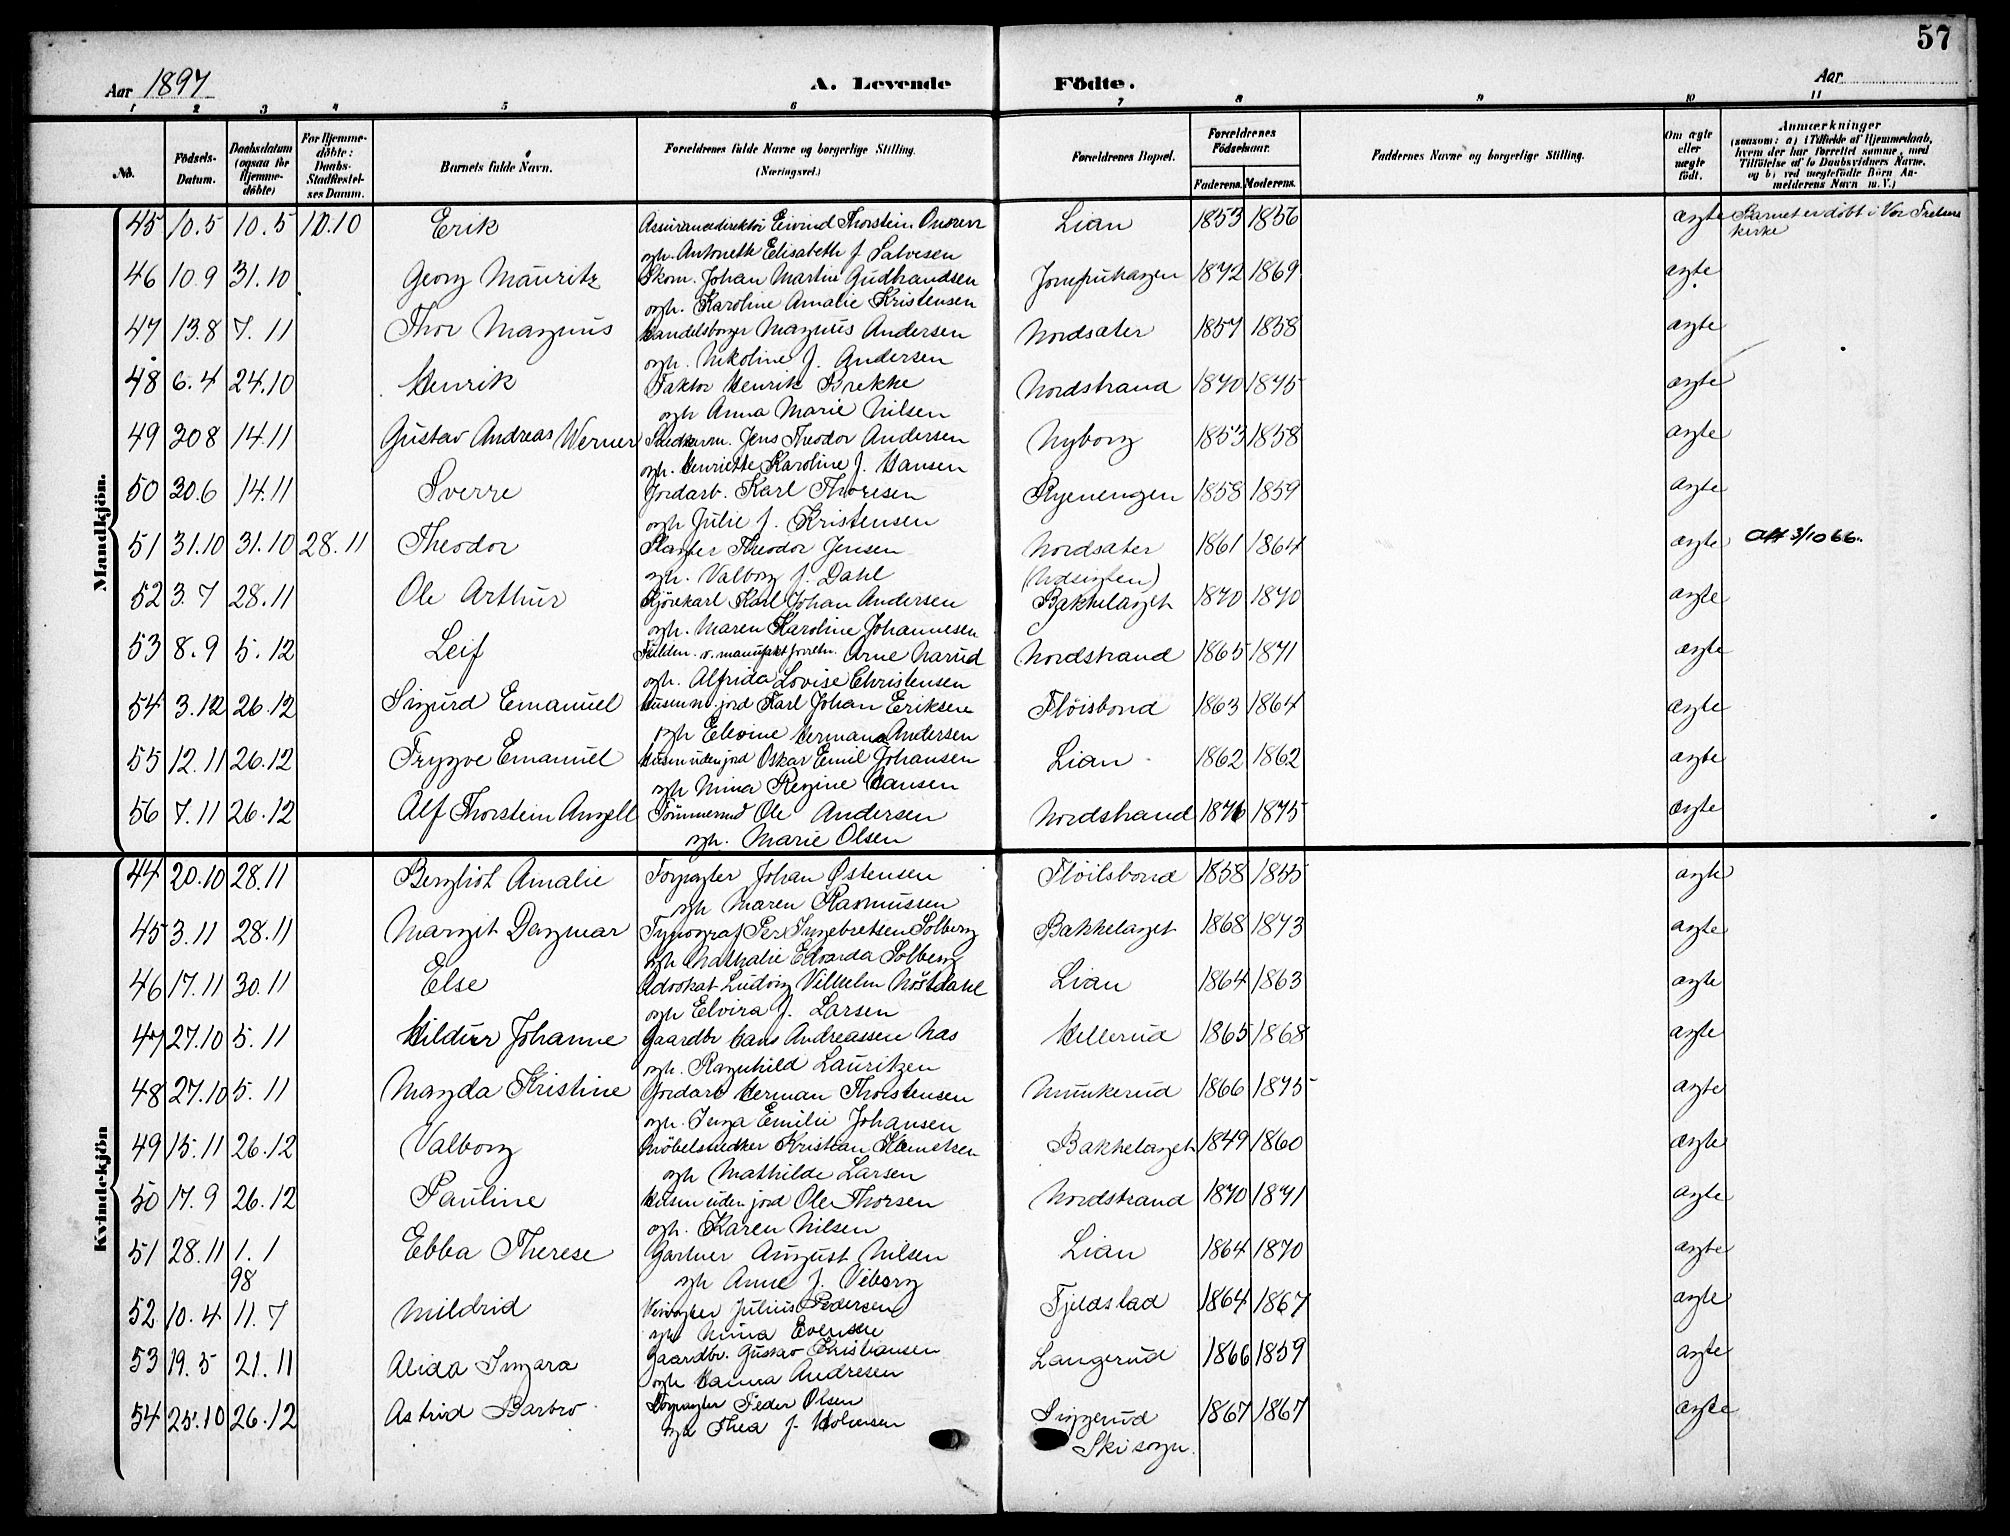 57
Aar 1897
A. Levende
Födte.
Aar
1 2 3 4 5 6 7 8 9 10 11
No. Födsels-Datum. Daabsdatum (ogsaa for Hjemme-döbte) For Hjemme-döbte: Daabs-Stadfæstel-ses Datum. Barnets fulde Navn. Forældrenes fulde Navne og borgerlige Stilling. (Næringsvei.) Forældrenes Bopæl. Forældrenes Födselsaar. Faderens. Moderens. Faddernes Navne og borgerlige Stilling. Om ægte eller uægte födt. Anmærkninger (saasom: a) i Tilfælde af Hjemmedaab, hvem der har forrettet samme, med Tilföielse af to Daabsvidners Navne. og b) ved uægtefödte Börn An-melderens Navn m. V.)
Mandkjön.
45 10.5 10.5 10.10 Erik Assurancedirektör Eivind Thorstein Lian 1853 1856 ægte Barnet er döbt i Vor Frelsers
kirke
og h. Antonette Elisabeth f. Salvesen
46 10.9 31.10 Georg Mauritz Skom. Johan Martin Gudbrandsen Jomfruhaugen 1872 1869 ægte
og h. Karoline Amalie Kristensen
47 13.8 7.11 Thor Magnus Handelsborger Magnus Andersen Nordsæter 1857 1858 ægte
og h. Nikoline J. Andersen
48 6.4 24.10 Henrik Faktor Henrik Brekke Nordstrand 1870 1875 ægte
og h Anna Marie Nilsen
49 20 8 14.11 Gustav Andreas Werner Snedkerm. Jens Theodor Andersen Nyborg 1853 1858 ægte
og h. Henriette Karoline f. Hansen
50 20.6 14.11 Sverre Jordarb. Karl Thoresen Ryenengen 1858 1859 ægte
og h Julie f. Kristensen
51 31.10 31.10 28.11 Theodor Slagter Theodor Jensen Nordsæter 1861 1864 ægte Att 3/10 66.
og h. Valborg f. Dahl (Udsigten)
52 3.7 28.11 Ole Arthur Kjörekarl Karl Johan Andersen Bækkelaget 1870 1870 ægte
og h. Maren Karoline Johannesen
53 8.9 5.12 Leif v. manufakt forretn. Arne Narud Nordstrand 1865 1871 ægte
og h. Alfrida Lovise Christensen
54 3.12 26.12 Sigurd Emanuel Husm m. jord Karl Johan Eriksen Flöisbond 1863 1864 ægte
og h Elevine Hermana Andersen
55 12.11 26.12 Trygve Emanuel Husm uden jord Oskar Emil Johansen Lian 1862 1862 ægte
og h Nina Regine Hansen
56 7.11 26.12 Alf Thorstein Angell Tömmermd Ole Andersen Nordstrand 1876 1875 ægte
og h. Marie Olsen
Kvindekjön
44 20.10 28.11 Bergliot Amalie Forpagter Johan Østensen Flöilsbond 1858 1855 ægte
og h Maren Rasmussen
45 3.11 28.11 Margit Dagmar Typograf Per Ingebretsen Solberg Bækkelaget 1868 1873 ægte
og h Nathalie Edvarda Solberg
46 17.11 30.11 Else Advokat Ludvig Vilhelm Lian 1864 1863 ægte
og h Elvira f. Larsen
47 27.10 5.11 Hildur Johanne Gaardbr Hans Andreassen Næs Hellerud 1865 1868 ægte
og h. Ragnhild Lauritzen
48 27.10 5.11 Magda Kristine Jordarb Herman Thorstensen Munkerud 1866 1875 ægte
og h. Inga Emilie Johansen
49 15.11 26.12 Valborg Möbelsnedker Kristian Bækkelaget 1849 1860 ægte
og h Mathilde Larsen
50 17.9 26.12 Pauline Husm uden jord Ole Thorsen Nordstrand 1870 1871 ægte
og h. Karen Nilsen
51 28.11 1.1
98 Ebba Therese Gartner August Nilsen Lian 1864 1870 ægte
og h Anne f. Viborg
52 10.4 11.7 Mildrid Julius Pedersen Fjeldstad 1864 1867 ægte
og h Nina Evensen
53 19.5 21.11 Alida Ingara Gaardbr. Gustav Kristiansen Langerud 1866 1859 ægte
og h Hanna Andresen
54 25.10 26.12 Astrid Barbro Forpagter Peder Olsen Siggerud 1867 1867 ægte
og h Thea f. Halvorsen Ski sogn.